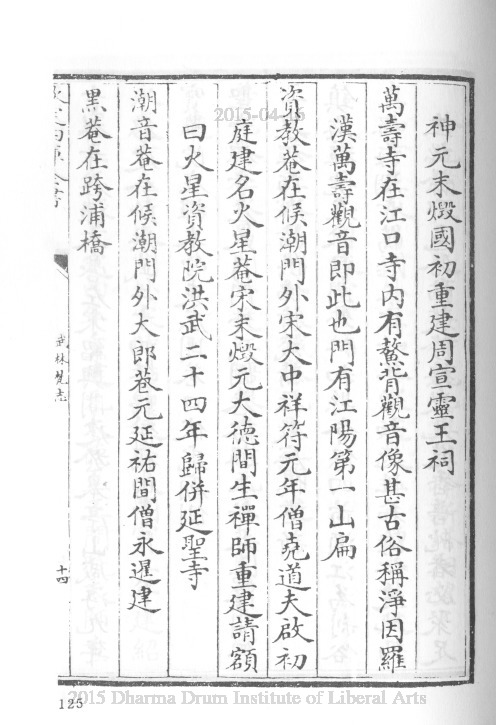 神元末燬國初重建周宣靈王祠
萬壽寺在江口寺内有鰲背觀音像甚古俗稱淨因羅
漢萬壽觀音即此也門有江陽第一山扁
資教菴在候潮門外宋大中祥符元年僧堯道夫啟初
庭建名火星菴宋末燬元大德間生禪師重建請額
曰火星資教院洪武二十四年歸併延聖寺
潮音菴在候潮門外大郎巷元延祐間僧永暹建
黑菴在跨浦橋
武林梵志
十四
2015-04-16
125
2015 Dharma Drum Institute of Liberal Arts